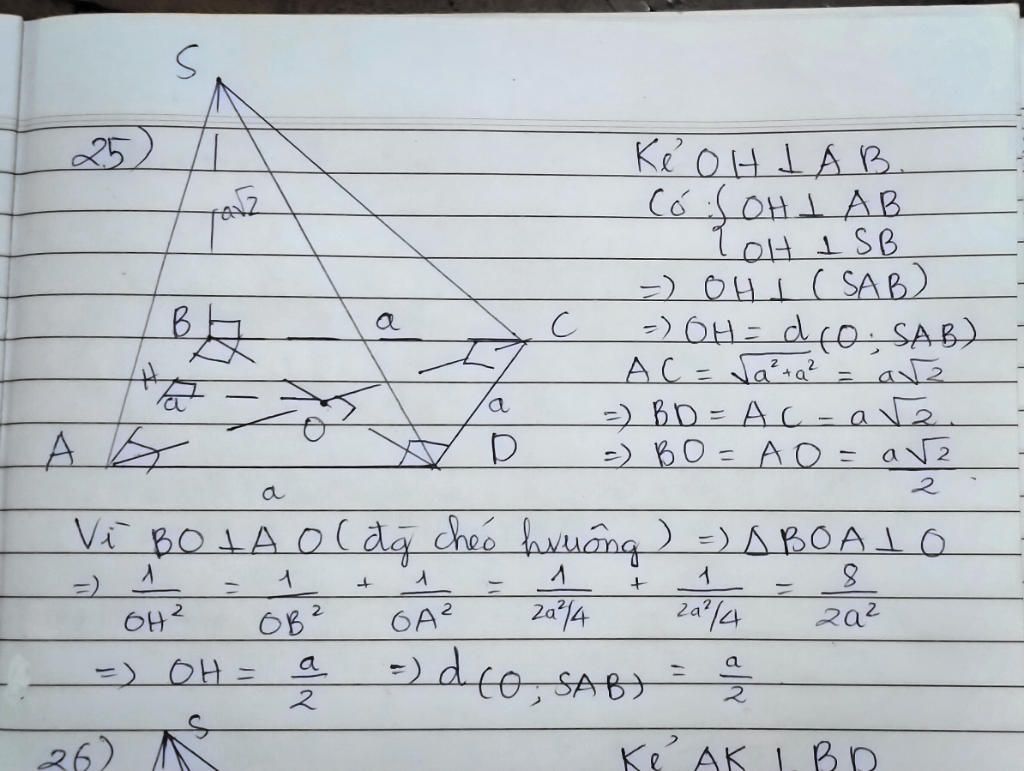 25)
S
a√2
B
a
C
H
a
O
a
A
D
a
Kẻ OH ⊥ AB.
Có : { OH ⊥ AB
OH ⊥ SB
=) OH ⊥ (SAB)
=) OH = d(O; SAB)
AC = √a²+a² = a√2
=) BD = AC = a√2.
=) BO = AO = a√2/2
Vì BO ⊥ AO (đg chéo hvuông) =) ΔBOA ⊥ O
=) 1/OH² = 1/OB² + 1/OA² = 1/2a²/4 + 1/2a²/4 = 8/2a²
=) OH = a/2 =) d(O; SAB) = a/2
26)
S
Kẻ AK ⊥ BD